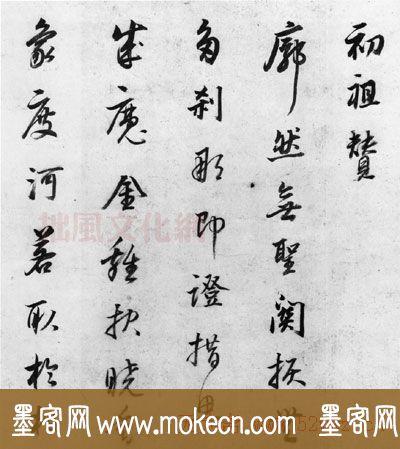 初祖贊
廓然無聖關捩無
多刹那即證措思
成魔金雞抉曉香
象度河若取於
拙風文化網
墨客网 www.mokecn.com 墨客网